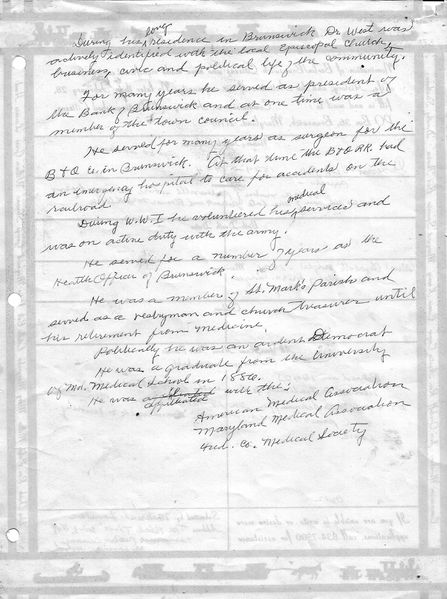 long
During his residence in Brunswick Dr. West was
actively identified with the local Episcopal Church,
business, civic and political life of the community.
For many years he served as president of
the Bank of Brunswick and at one time was a
member of the town council.
He served for many years as surgeon for the
B & O Co. in Brunswick. At that time the B & O RR. had
an emergency hospital to care for accidents on the
railroad
medical
During W.W. I he volunteered his services and
was on active duty with the army.
He served for a number of years as the
Health Officer of Brunswick.
He was a member of St. Mark's Parish and
served as a vestryman and church treasurer until
his retirement from medicine.
Politically he was an ardent Democrat
He was a graduate from the University
of Md. Medical School in 1886.
He was with the:
affiliated
American Medical Association
Maryland Medical Association
Fred. Co. Medical Society